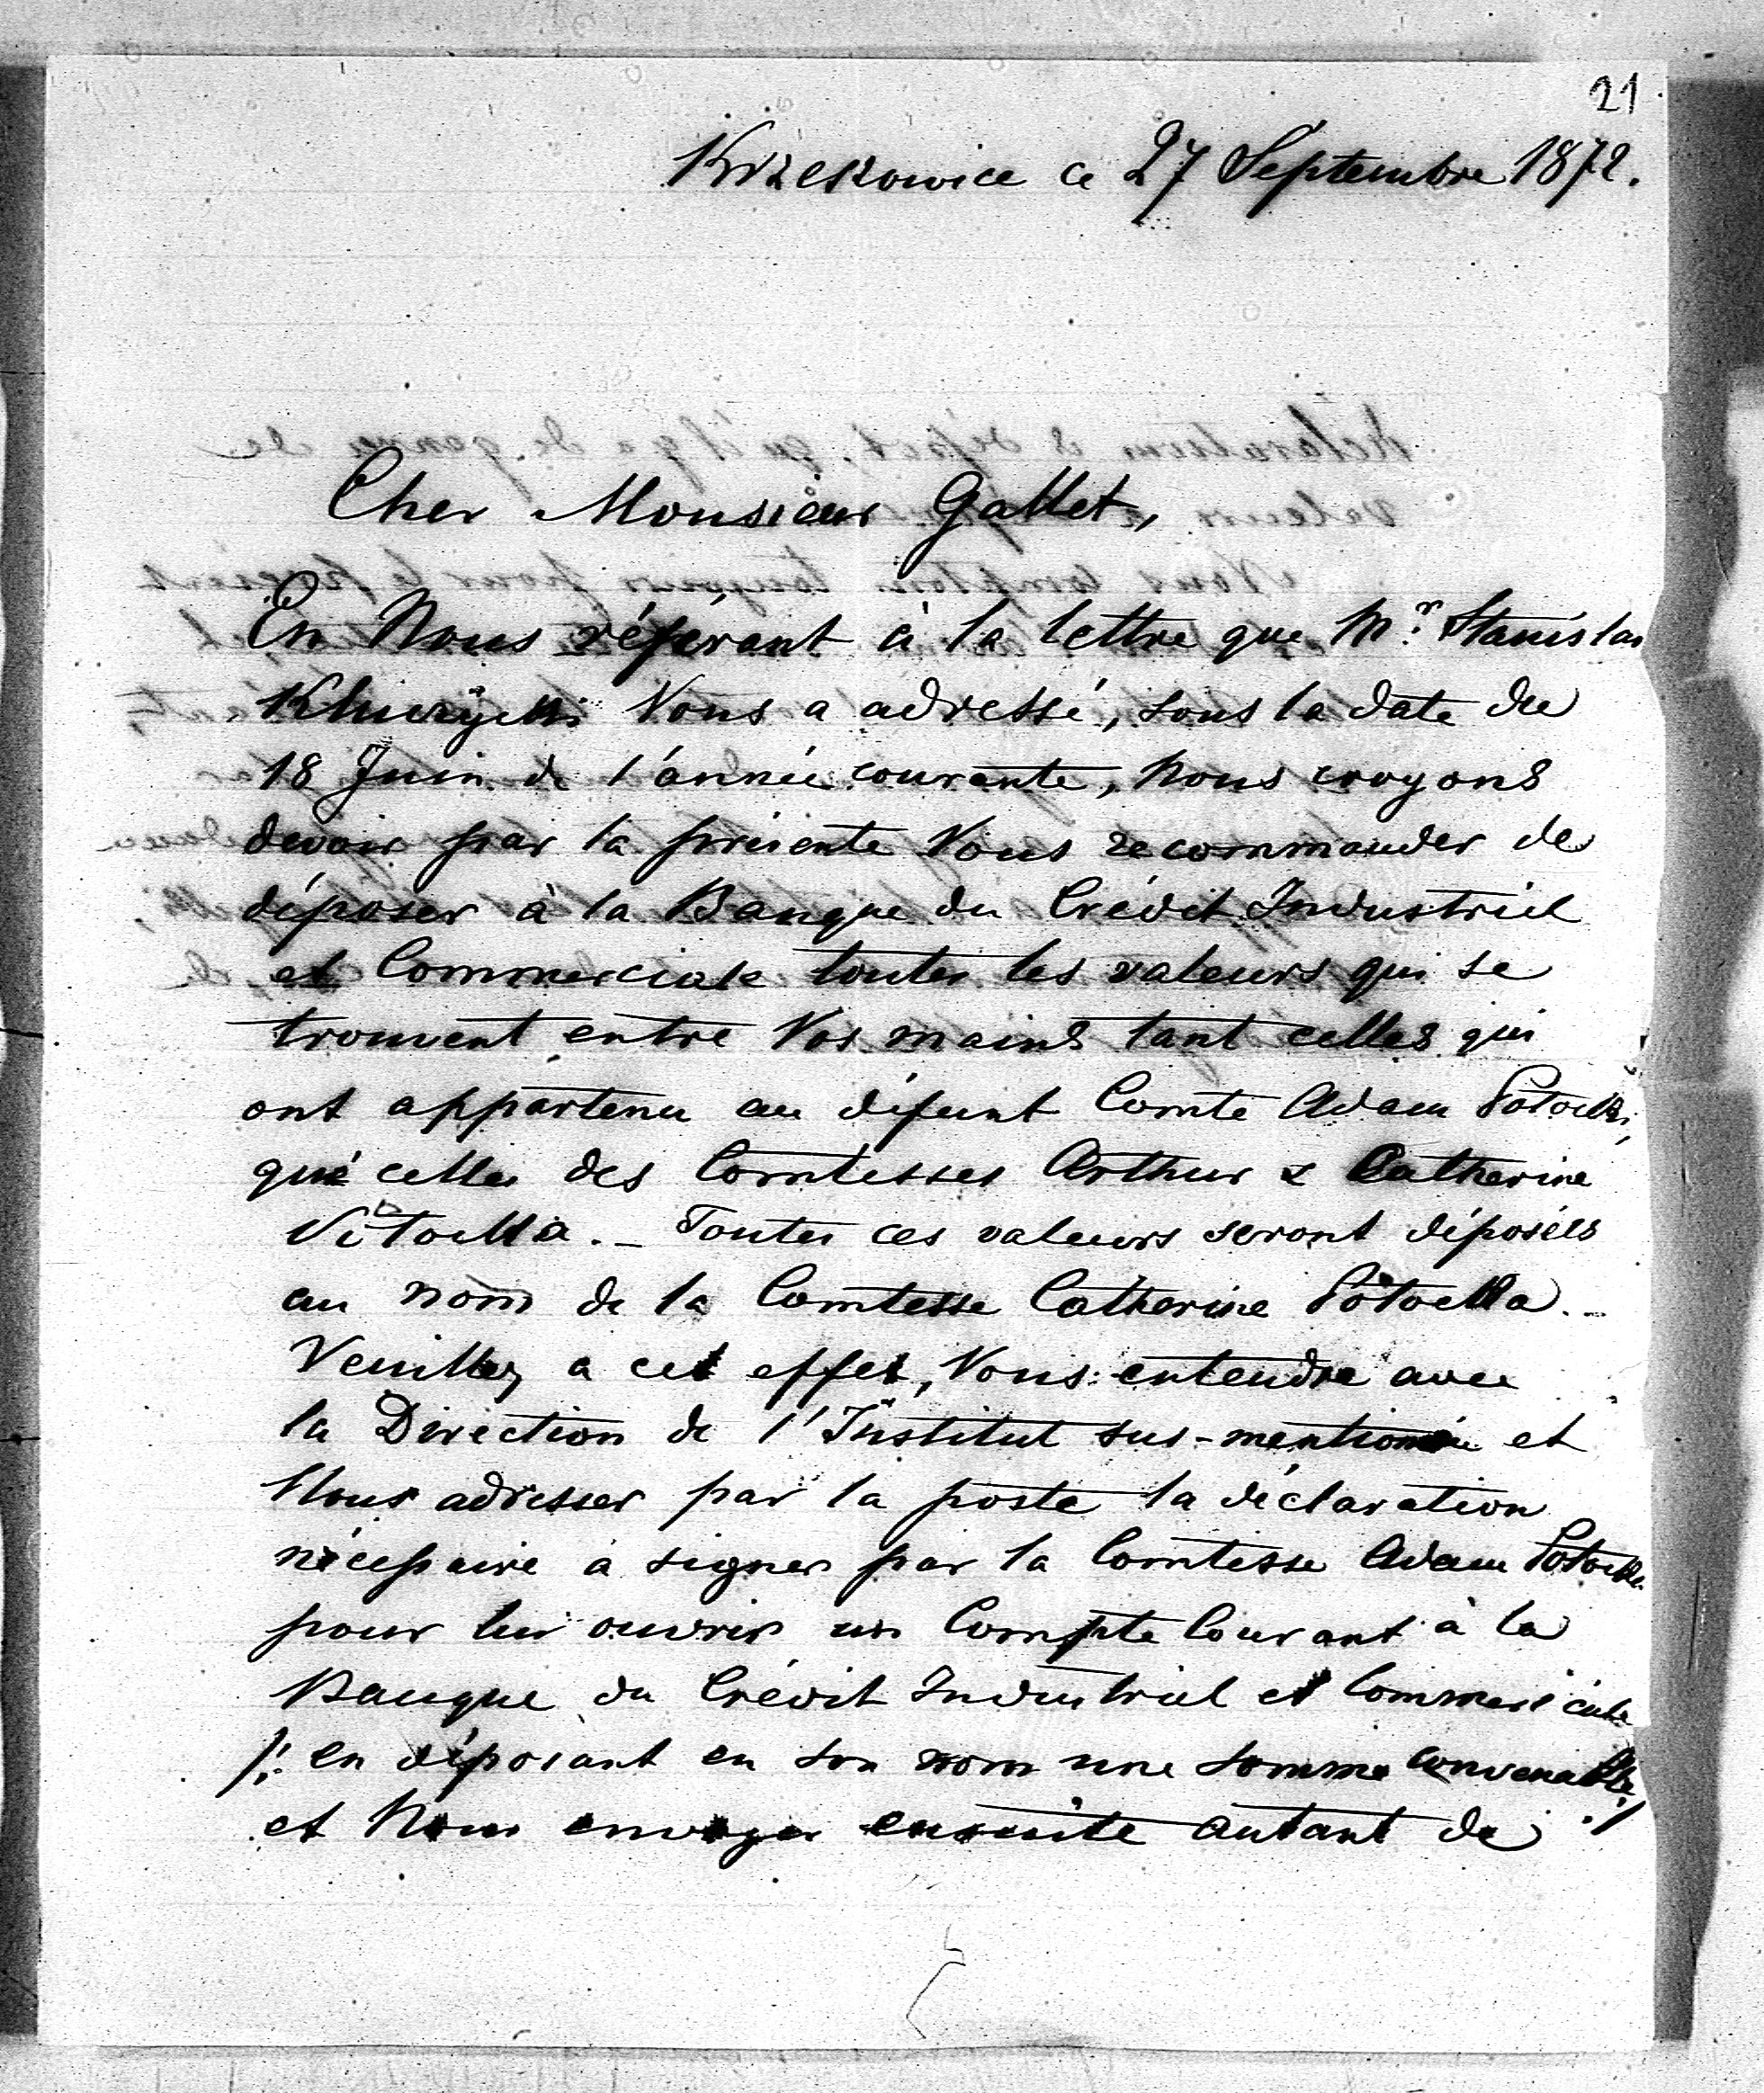 21
Krzeszowice ce 27 Septembre 1872.
Cher Monsieur Gallet,
En Nous référant à la lettre que Mr. Stanislas
Vous a adressé, sous la date du
18 Juin de l'année courante, Nous croyons
devoir par la présente Vous recommander de
déposer à la Banque du Crédit Industriel
et Commerciale toutes les valeurs qui se
trouvent entre Vos mains tant celles qui
ont appartenu au défunt Comte Adam Potocki,
que celles des Comtesses Arthur & Catherine
Potocka. – Toutes ces valeurs seront déposées
au nom de la Comtesse Catherine Potocka. –
Veuillez a cet effet, Vous entendre avec
la Direction de l'Institut sus-mentionnée et
Nous adresser par la poste la déclaration
nécessaire à signer par la Comtesse Adam Potocka
pour lui ouvrir un Compte Courant à la
Banque du Crédit Industriel et Commerciale
/: en déposant en son nom une somme convenable :/
et Nous envoyer ensuite autant de